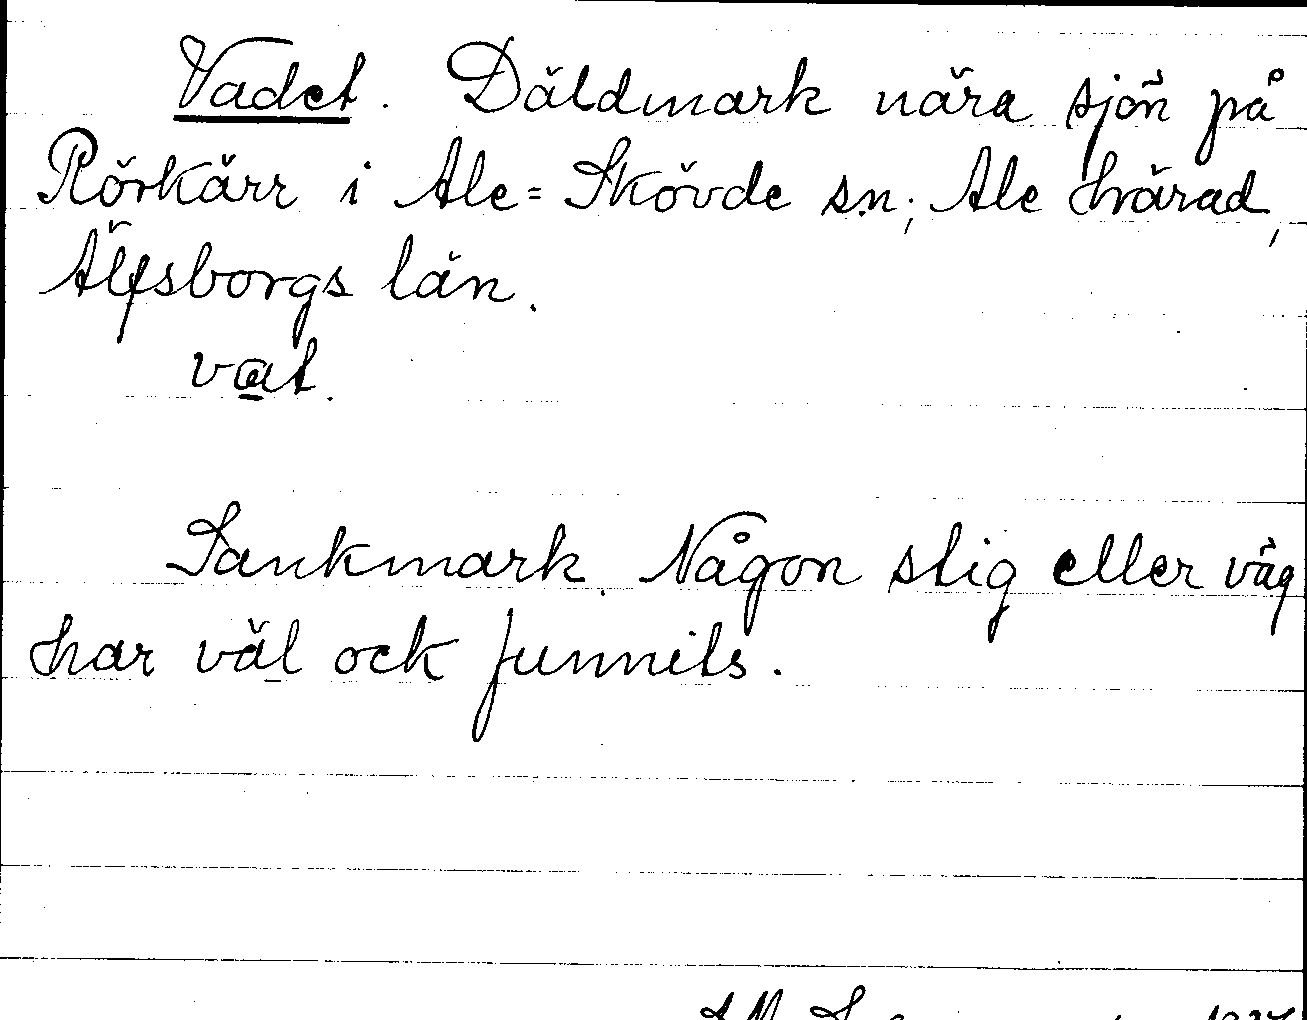 Vadet. Däldmark nära sjön på
Rörkärr i Ale=Skövde sn; Ale härad,
Älfsborgs län.
vat.
Sankmark. Någon stig eller väg
har väl ock funnits.